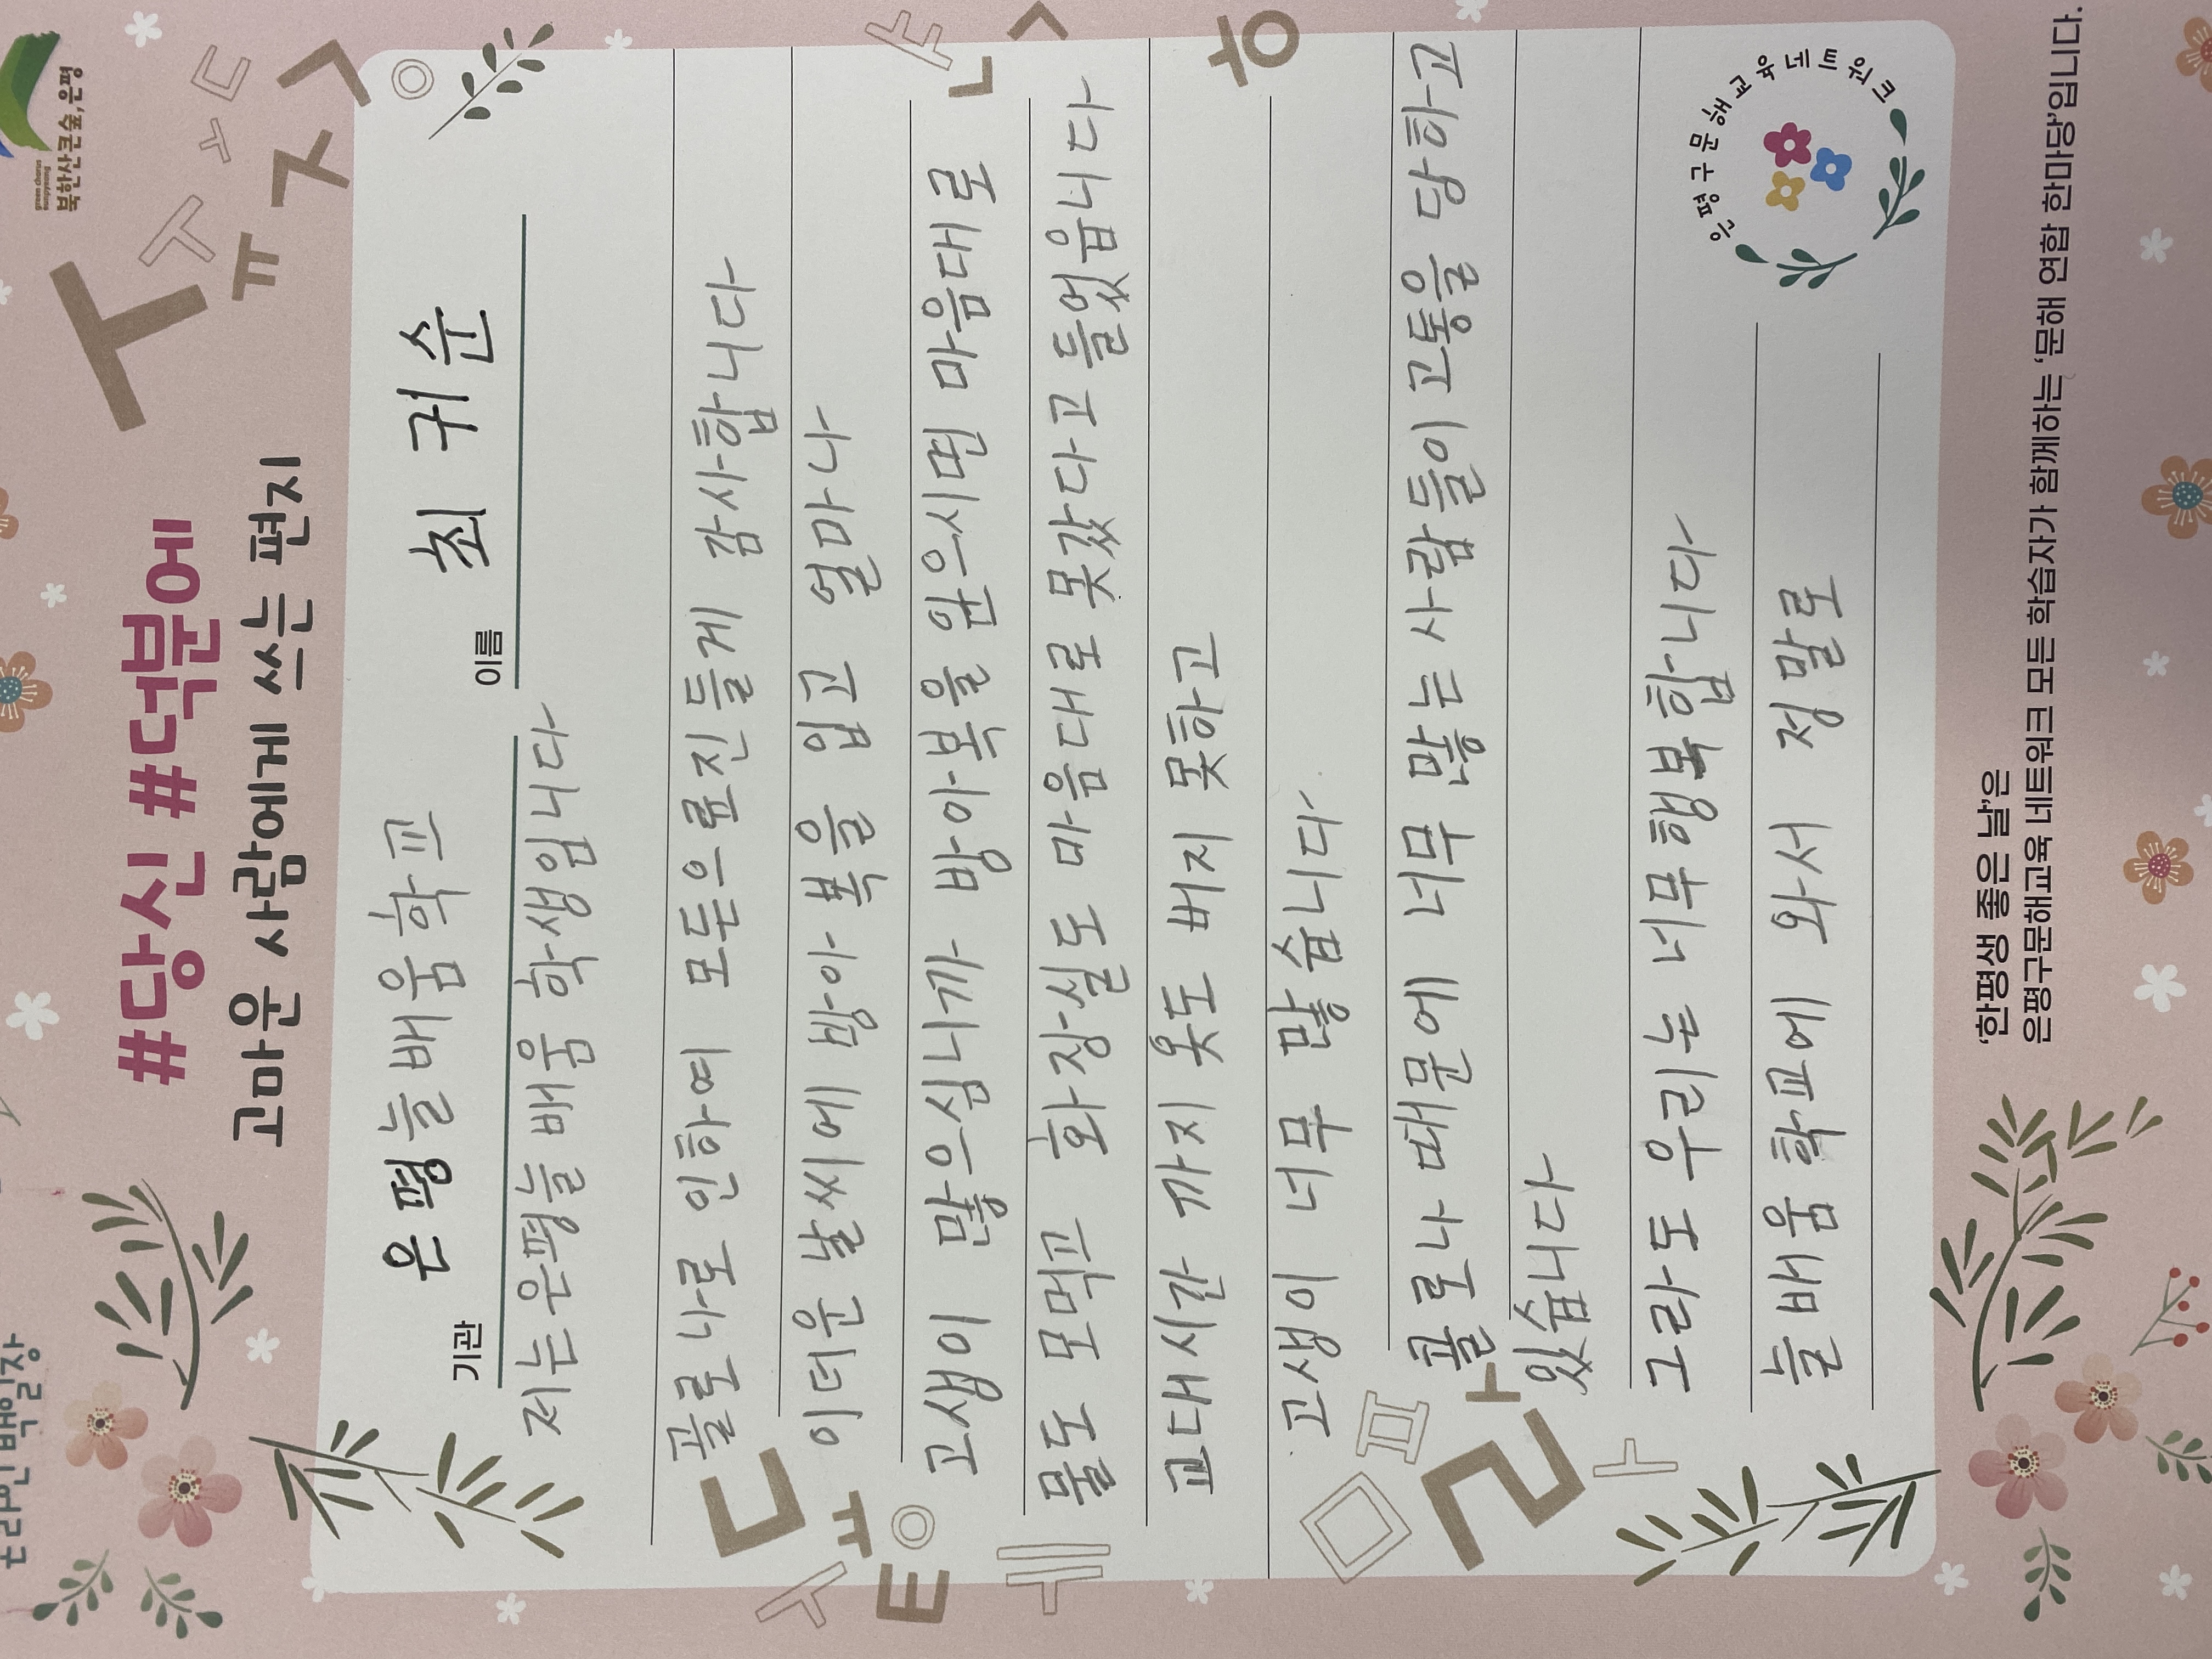 북한산큰숲,은평
온라인 백일장
#당신 #덕분에
고마운 사람에게 쓰는 편지
기관 은평늘배움학교 이름 최귀순
저는은평늘배움 학생입니다
콜로나로 인하여 모든으료진들게 감사합니다
이더운 날씨에 방아복을 입고 얼마나
고생이 많으심니까 방아복을 입으시면 마음대로
물도 모먹고 화장실도 마음대로 못갔다고 들었읍니다
교대시간 까지 옷도 버지 못하고
고생이 너무 많습니다.
콜로나 때문에 너무 많는 사람들이 고통을 당하고
있습니다
그라도 우리는 너무행복합니다
늘배움학교에 와서 정말로
은평구문해교육네트워크
'한평생 좋은 날'은
은평구문해교육 네트워크 모든 학습자가 함께하는 '문해 연합 한마당'입니다.